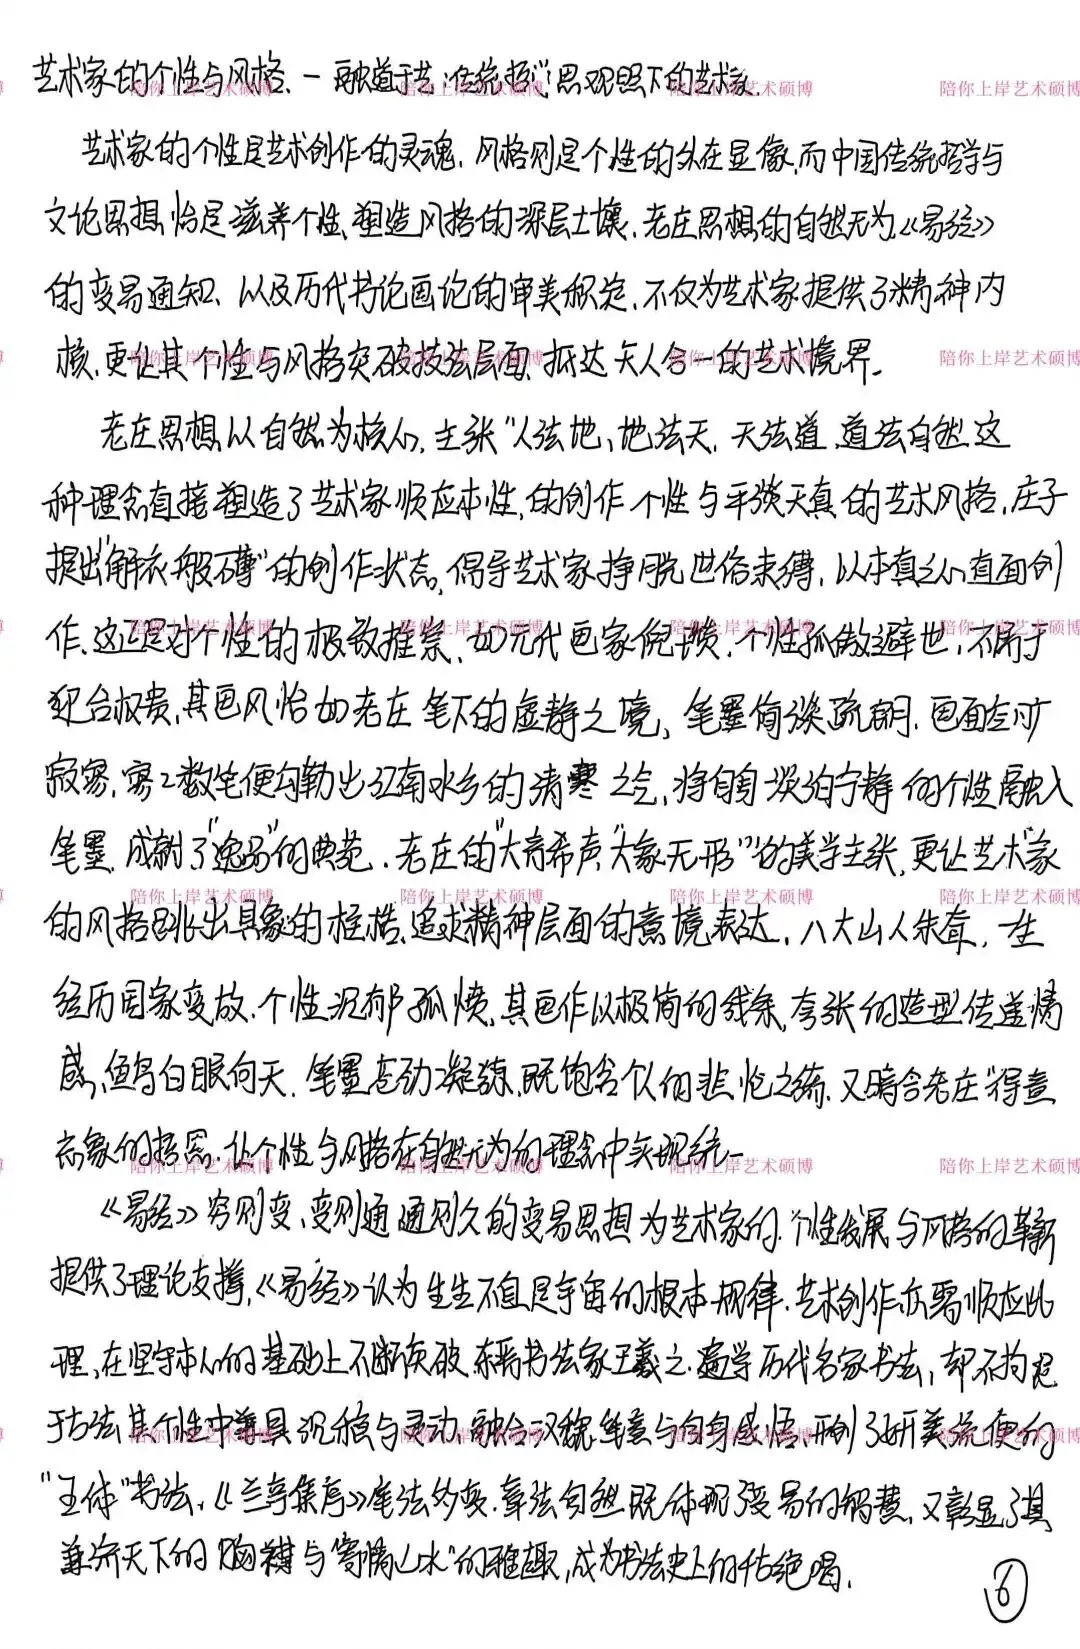 艺术家的个性与风格.—融道于艺:传统哲思观照下的艺术家.
艺术家的个性是艺术创作的灵魂,风格则是个性的外在显像,而中国传统哲学与
文论思想恰是滋养个性、塑造风格的深层土壤.老庄思想的自然无为,《易经》
的变易通知、以及历代书论画论的审美积淀,不仅为艺术家提供了精神内
核,更让其个性与风格突破技法层面,抵达天人合一的艺术境界.
老庄思想以自然为核心,主张"人法地,地法天,天法道,道法自然"这
种理念直接塑造了艺术家顺应本性,的创作个性与平淡天真的艺术风格,庄子
提出"解衣般礴"的创作状态,倡导艺术家挣脱世俗束缚,以本真之心直面创
作,这正是对个性的极致推崇,如元代画家倪瓒,个性孤傲避世,不屑于
迎合权贵,其画风恰如老庄笔下的虚静之境,笔墨简淡疏朗.画面空旷
寂寥,寥寥数笔便勾勒出江南水乡的清寒之气,将自身淡泊宁静的个性融入
笔墨,成就了"逸品"的典范.老庄的"大音希声,"大象无形""的美学主张,更让艺术家
的风格跳出具象的桎梏,追求精神层面的意境表达,八大山人朱耷,一生
经历国家变故,个性沉郁孤愤,其画作以极简的线条,夸张的造型传递情
感,鱼鸟白眼向天.笔墨苍劲凝练,既饱含个人的悲怆之痛,又暗含老庄"得意
忘象的哲思,让个性与风格在自然无为的理念中实现统一
《易经》穷则变、变则通,通则久的变易思想为艺术家的.个性发展与风格的革新
提供了理论支撑,《易经》认为生生不息是宇宙的根本规律.艺术创作亦需顺应此
理,在坚守本心的基础上不断突破,东晋书法家王羲之.遍学历代名家书法,却不拘泥
于古法,其个性中兼具沉稳与灵动,融合汉魏笔意与自身感悟,开创了妍美流便的
"王体"书法,《兰亭集序》笔法妙变.章法自然既体现了变易的智慧,又彰显了其
兼济天下的胸襟与"寄情山水"的雅趣,成为书法史上的千古绝唱.
6
陪你上岸艺术硕博